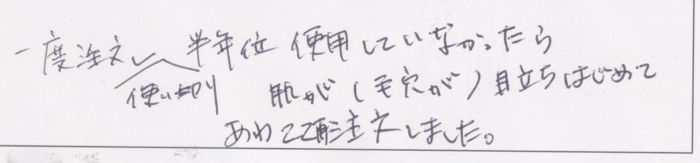 一度注文し 半年位 使用していなかったら
使い切り
肌が(毛穴が)目立ちはじめて
あわてて再注文しました。